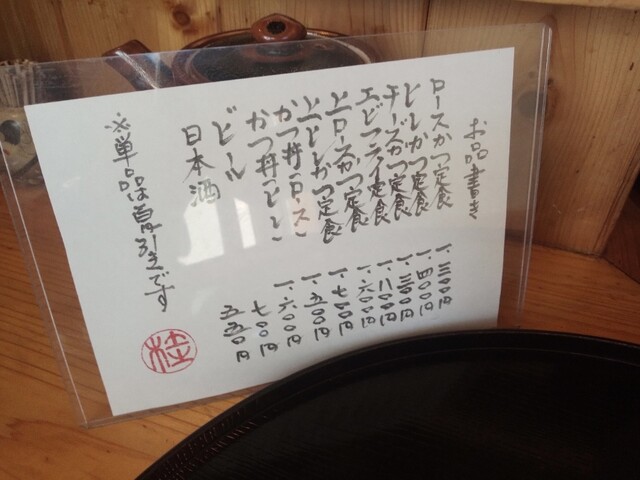 お品書き
ロースかつ定食 一、三〇〇円
ヒレかつ定食 一、四〇〇円
チーズかつ定食
エビフライ定食 一、八〇〇円
上ロースかつ定食 一、六〇〇円
上ヒレかつ定食 一、七〇〇円
かつ丼(ロース) 一、五〇〇円
かつ丼(ヒレ) 一、六〇〇円
ビール 七〇〇円
日本酒 五五〇円
※単品は百円引きです
桂